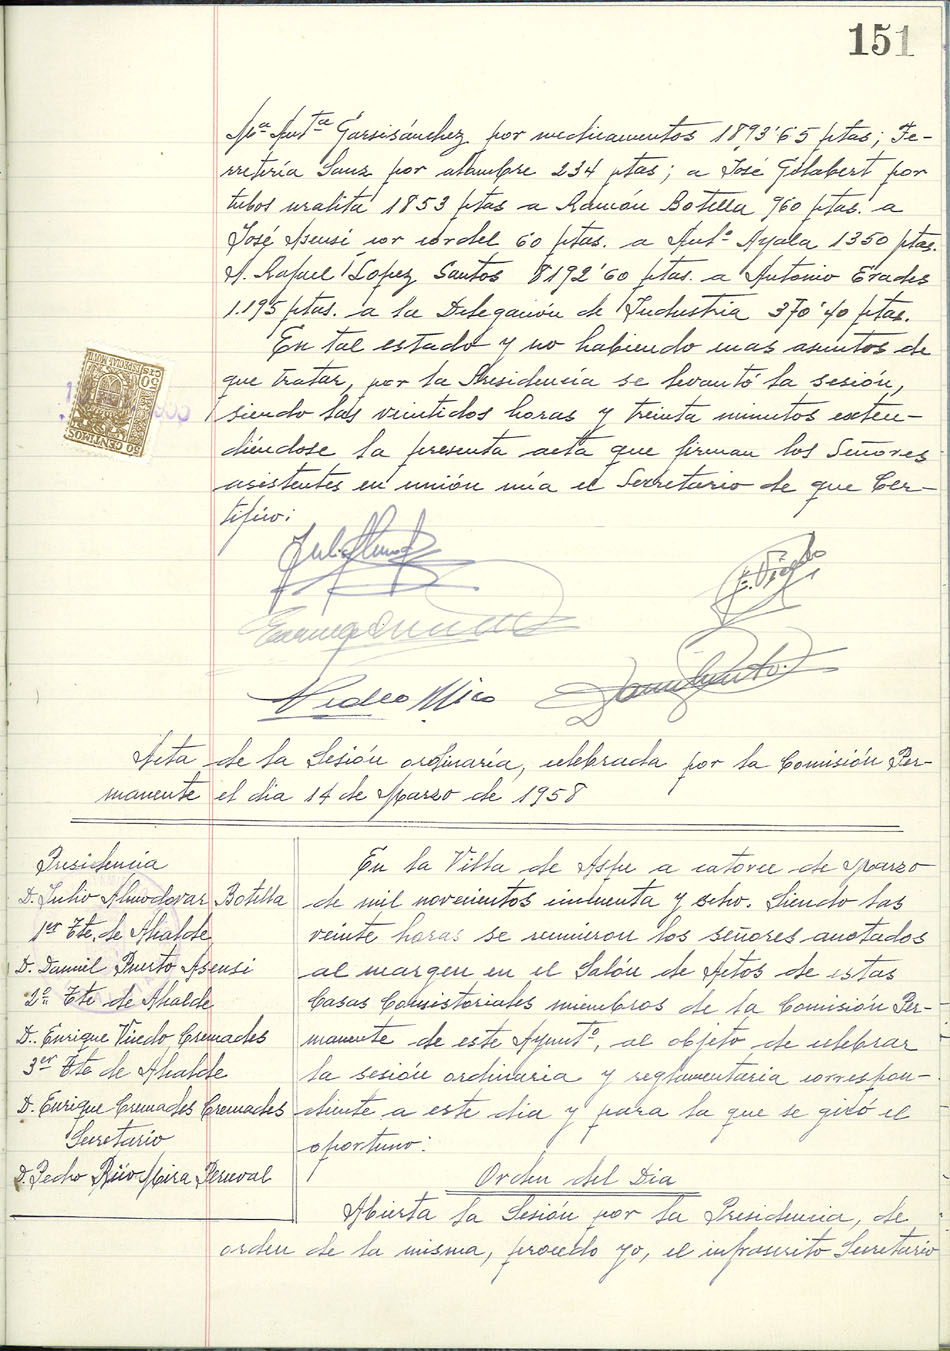 151
Mª Antª Garsisánchez por medicamentos 1893'65 ptas; Fe-
rretería Sanz por alambre 234 ptas; a José Gilabert por
tubos uralita 1853 ptas a Ramón Botella 960 ptas. a
José Asensi por cordel 60 ptas. a Antº Ayala 1350 ptas.
A. Rafael López Santos 8192'60 ptas. a Antonio Erades
1.195 ptas. a la Delegación de Industria 370'40 ptas.
En tal estado y no habiendo mas asuntos de
que tratar, por la Presidencia se levantó la sesión,
siendo las veintidos horas y treinta minutos exten-
diéndose la presente acta que firman los Señores
asistentes en unión mía el Secretario de que Cer-
tifico:
50 CENTIMOS
50 CTS
E. Viedo
Pedro Mira
Daniel Puerto
Acta de la Sesión ordinaria, celebrada por la Comisión Per-
manente el dia 14 de Marzo de 1958
Presidencia
D. Julio Almodovar Botella
1er Tte. de Alcalde
D. Daniel Puerto Asensi
2º Tte de Alcalde
D. Enrique Viedo Cremades
3er Tte de Alcalde
D. Enrique Cremades Cremades
Secretario
D. Pedro Mira Perceval
En la Villa de Aspe a catorce de Marzo
de mil novecientos cincuenta y ocho. Siendo las
veinte horas se reunieron los señores anotados
al margen en el Salón de Actos de estas
Casas Consistoriales miembros de la Comisión Per-
manente de este Ayuntº, al objeto de celebrar
la sesión ordinaria y reglamentaria correspon-
diente a este dia y para la que se giró el
oportuno:
Orden del Dia
Abierta la Sesión por la Presidencia, de
orden de la misma, procedo yo, el infrascrito Secretario